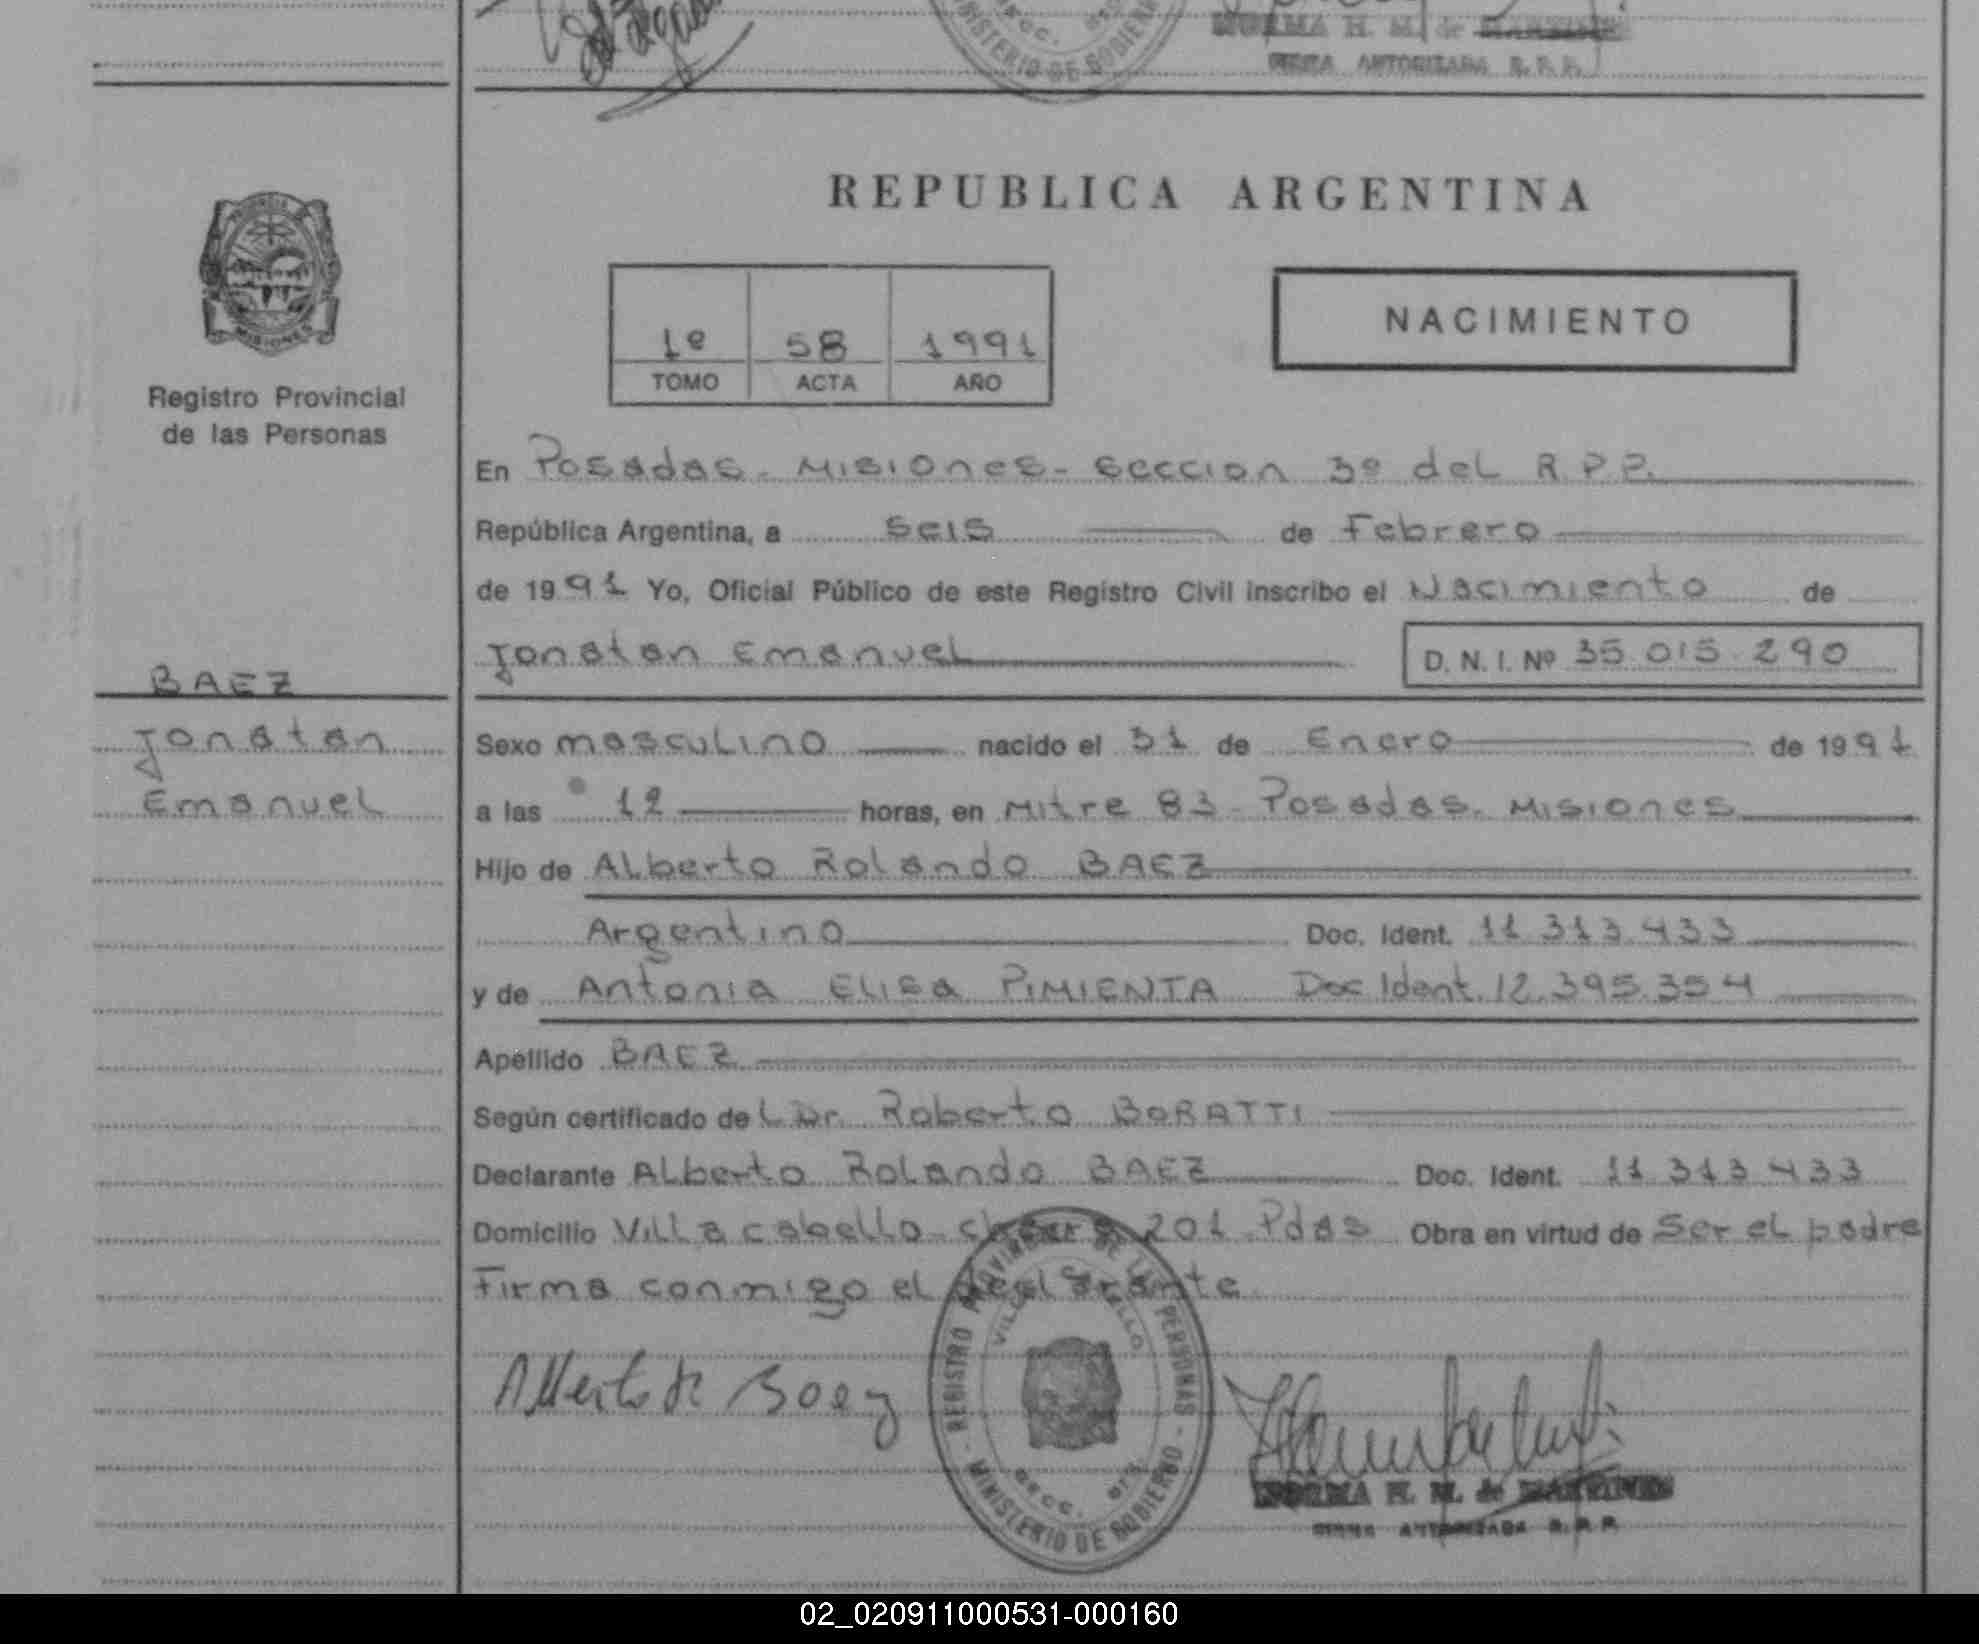 MINISTERIO DE GOBIERNO
NORMA H. M. de MARTINEZ
FIRMA AUTORIZADA R. P. P.
REPUBLICA ARGENTINA
PROVINCIA DE
MISIONES
Registro Provincial
de las Personas
1º 58 1991
TOMO ACTA AÑO
NACIMIENTO
En Posadas - Misiones - seccion 3º del R.P.P.
República Argentina, a seis de Febrero
de 1991 Yo, Oficial Público de este Registro Civil inscribo el Nacimiento de
Jonatan Emanuel D. N. I. Nº 35.015.290
BAEZ
Jonatan
Emanuel
Sexo masculino nacido el 31 de Enero de 1991
a las 12 horas, en Mitre 83 - Posadas. Misiones
Hijo de Alberto Rolando BAEZ
Argentino Doc. Ident. 11.313.433
y de Antonia Elisa PIMIENTA Doc Ident. 12.395.354
Apellido BAEZ
Según certificado del Dr. Roberto BORATTI
Declarante Alberto Rolando BAEZ Doc. Ident. 11.313.433
Domicilio Villa cabello - chacra 201 - Pdas Obra en virtud de ser el padre
Firma conmigo el declarante
Alberto R Baez
REGISTRO PROVINCIAL DE LAS PERSONAS
VILLA CABELLO
MINISTERIO DE GOBIERNO
NORMA H. M. de MARTINEZ
FIRMA AUTORIZADA R. P. P.
02_020911000531-000160